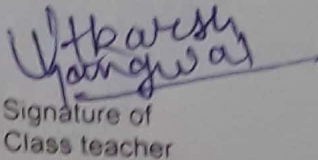 Utkarsh
Gangwar
Signature of
Class teacher